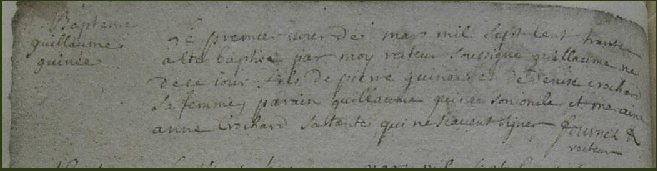 Bapteme
guillaume
guinée
Le premier iour de may mil sept cent trante
a eté baptisé par moy recteur soussigné guillaume né
de ce iour fils de pierre guinée et de denise crochard
sa femme, parain guillaume guinée son oncle et maraine
anne crochard sa tante qui ne scavent signer fournel R
recteur